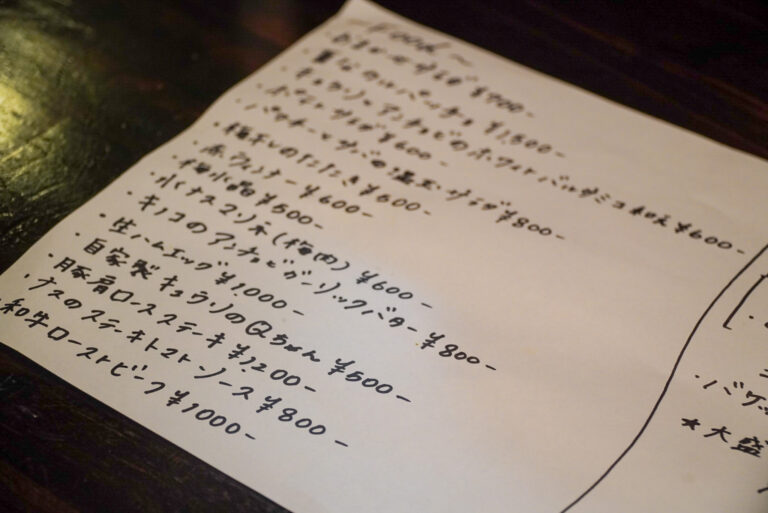 Food～
おまかせサラダ ¥700-
¥1,500-
キュウリとアンチョビのホワイトバルサミコ和え ¥600-
ポテトサラダ ¥600-
パクチーとサバの温玉サラダ ¥800-
・梅干しのたたき ¥600-
・赤ウィンナー ¥600-
・梅水晶 ¥500-
・水ナス2リ木(梅肉) ¥600-
・キノコのアンチョビガーリックバター ¥800-
・生ハムエッグ ¥1,000-
・自家製キュウリのQちゃん ¥500-
・豚肩ロースステーキ ¥1,200-
・ナスのステーキトマトソース ¥800-
・和牛ローストビーフ ¥1000-
・バケッ
★大盛